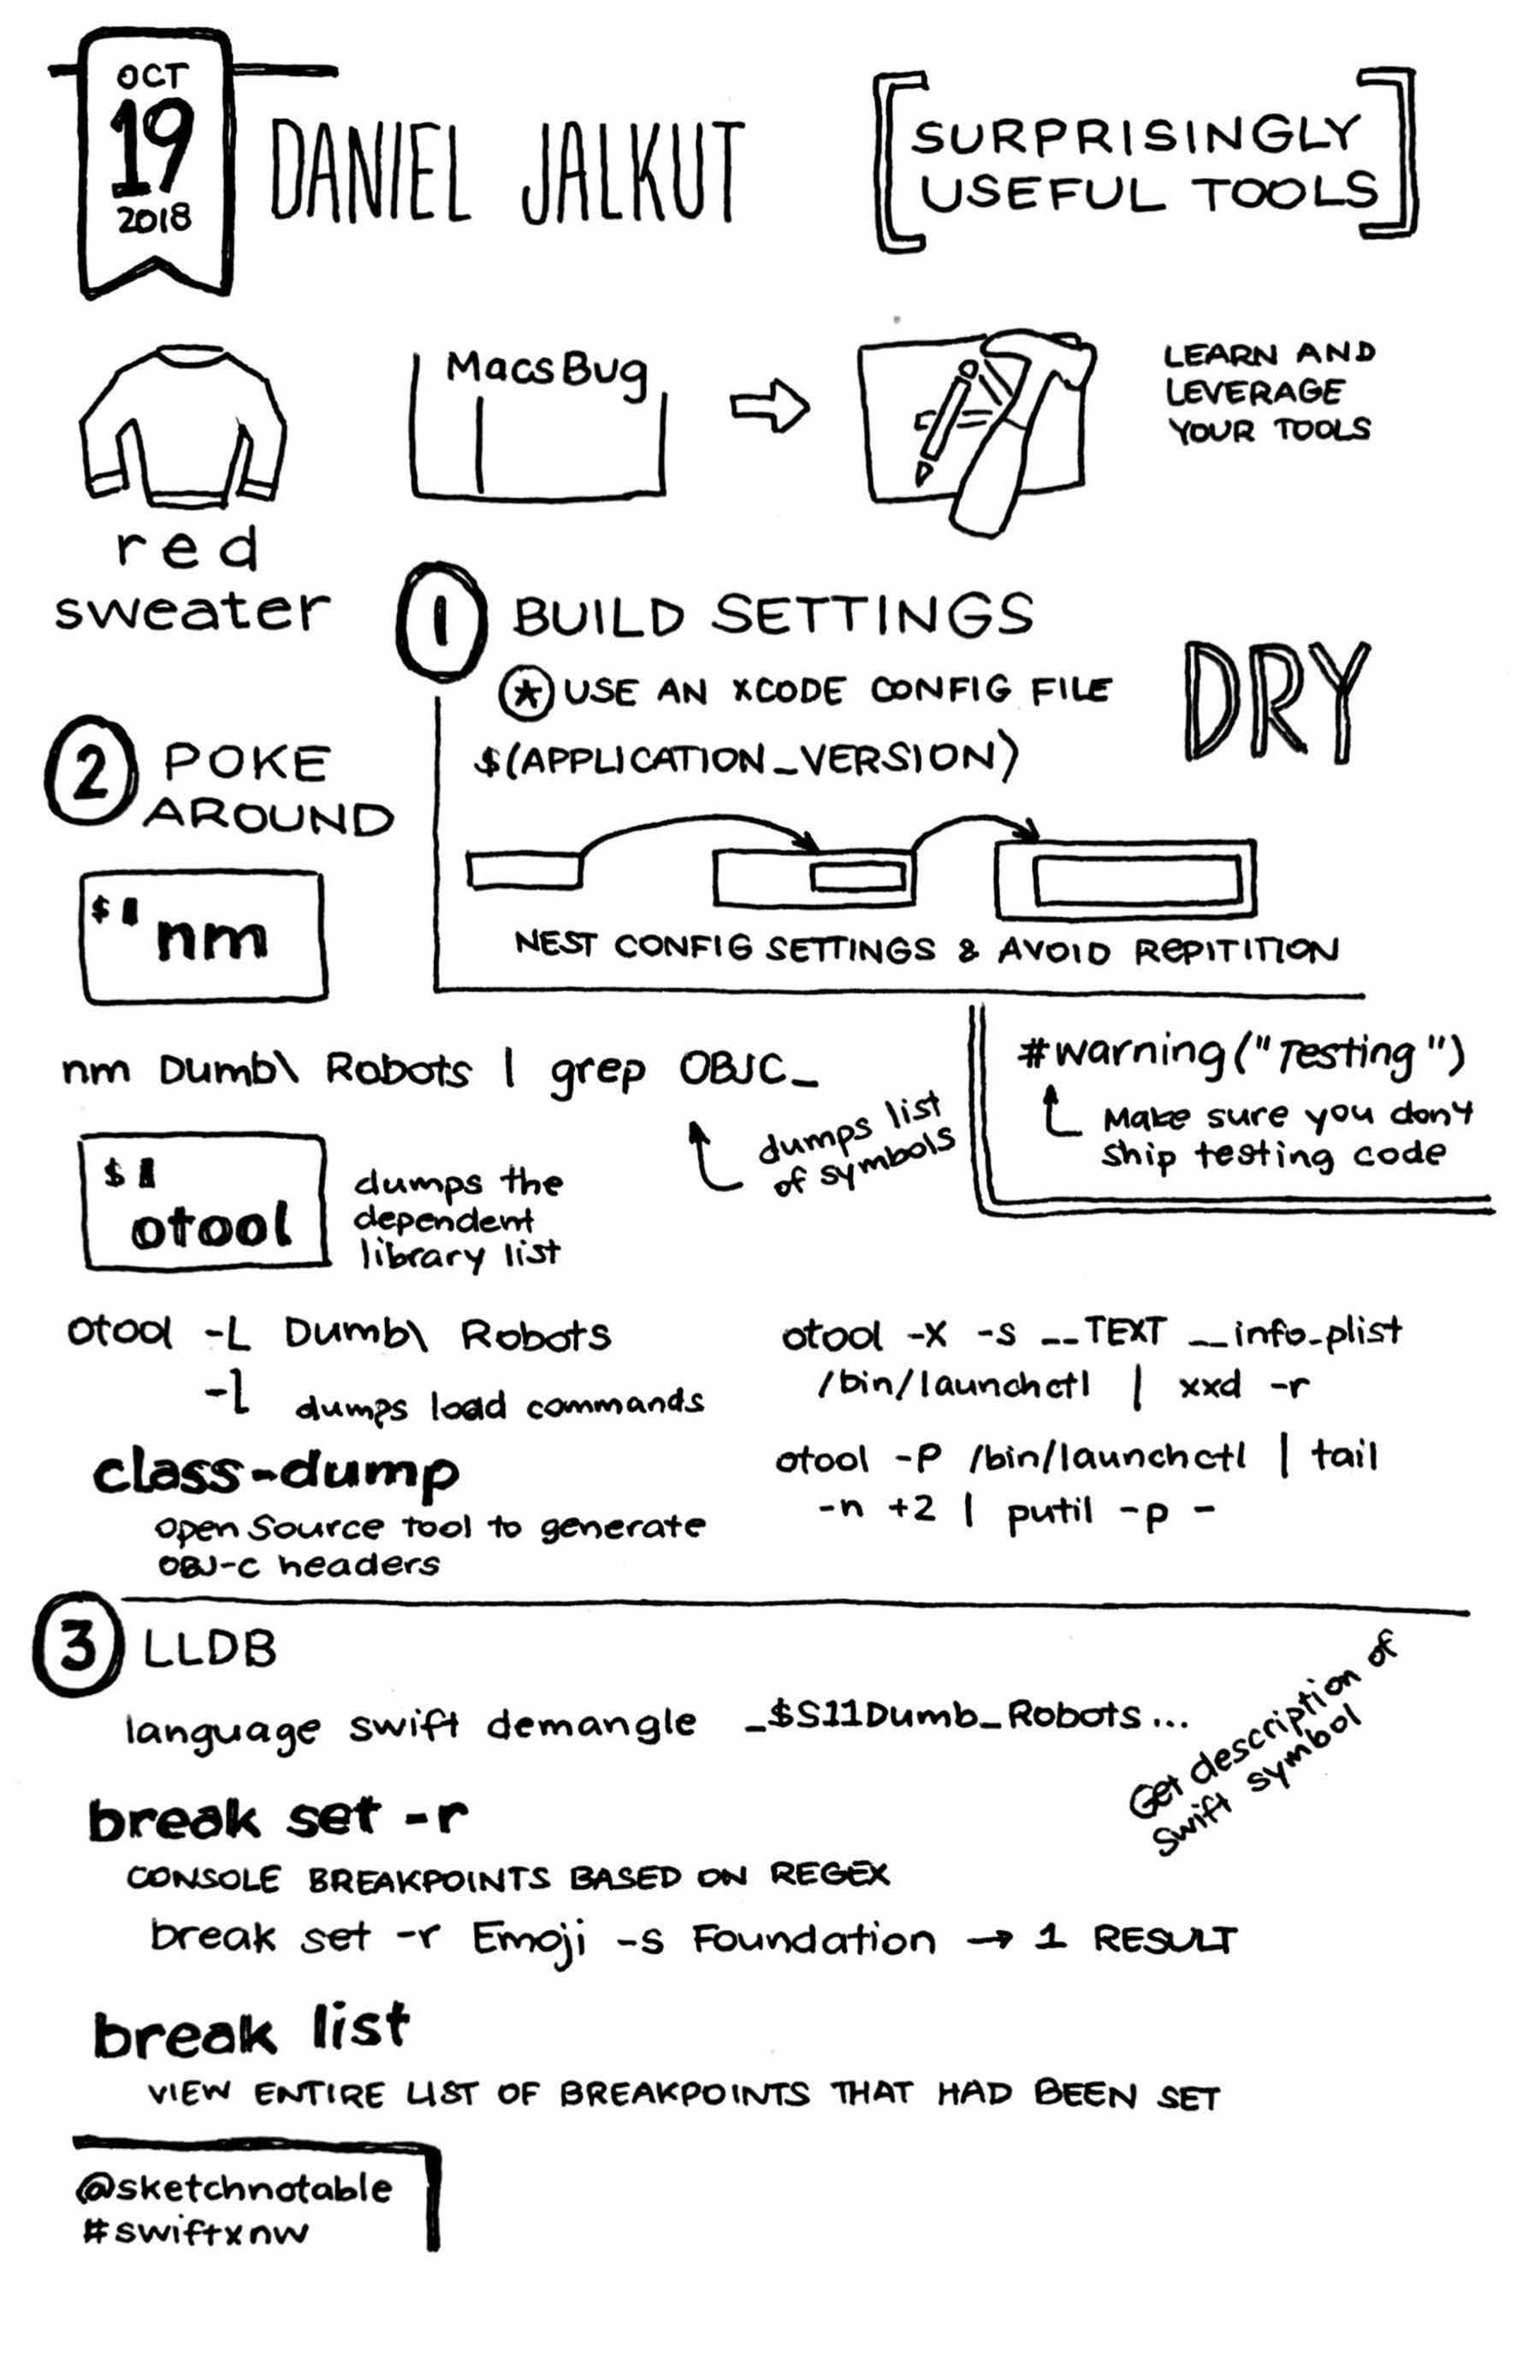 OCT
19
2018
DANIEL JALKUT
SURPRISINGLY
USEFUL TOOLS
red
sweater
MacsBug
LEARN AND
LEVERAGE
YOUR TOOLS
1 BUILD SETTINGS
* USE AN XCODE CONFIG FILE
DRY
$(APPLICATION_VERSION)
NEST CONFIG SETTINGS & AVOID REPITITION
#warning("Testing")
Make sure you don't
ship testing code
2 POKE
AROUND
$ nm
nm Dumb\ Robots | grep OBJC_
dumps list
of symbols
$
otool
dumps the
dependent
library list
otool -L Dumb\ Robots
-l dumps load commands
class-dump
open source tool to generate
OBJ-C headers
otool -X -s __TEXT __info_plist
/bin/launchctl | xxd -r
otool -P /bin/launchctl | tail
-n +2 | putil -p -
3 LLDB
language swift demangle _$S11Dumb_Robots...
Get description of
swift symbol
break set -r
CONSOLE BREAKPOINTS BASED ON REGEX
break set -r Emoji -s Foundation → 1 RESULT
break list
VIEW ENTIRE LIST OF BREAKPOINTS THAT HAD BEEN SET
@sketchnotable
#swiftxnw